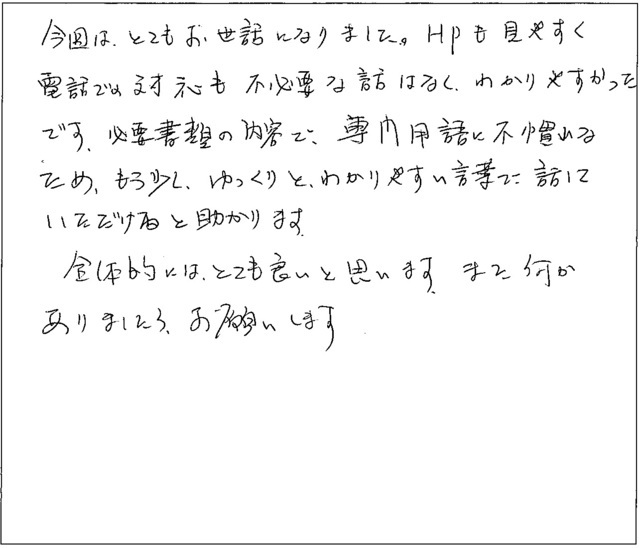 今回は、とてもお世話になりました。HPも見やすく
電話での対応も不必要な話はなく、わかりやすかった
です。必要書類の内容で、専門用語に不慣れな
ため、もう少し、ゆっくりと、わかりやすい言葉で話して
いただけると助かります。
全体的には、とても良いと思います。また何か
ありましたら、お願いします